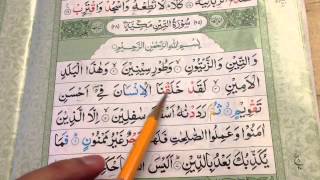 الزَّبَانِيَةَ ۝ كَلَّا لَا تُطِعْهُ وَاسْجُدْ وَاقْتَرِبْ
سُوْرَةُ التِّيْنِ مَكِّيَّةٌ
بِسْمِ اللهِ الرَّحْمٰنِ الرَّحِيْمِ
وَالتِّيْنِ وَالزَّيْتُوْنِ ۝ وَطُوْرِ سِيْنِيْنَ ۝ وَهٰذَا الْبَلَدِ
الْاَمِيْنِ ۝ لَقَدْ خَلَقْنَا الْاِنْسَانَ فِيْ اَحْسَنِ
تَقْوِيْمٍ ۝ ثُمَّ رَدَدْنٰهُ سٰفِلِيْنَ ۝
اٰمَنُوْا وَعَمِلُوا الصّٰلِحٰتِ اَجْرٌ غَيْرُ مَمْنُوْنٍ ۝ فَمَا
يُكَذِّبُكَ بَعْدُ بِالدِّيْنِ ۝ اَلَيْسَ اللهُ